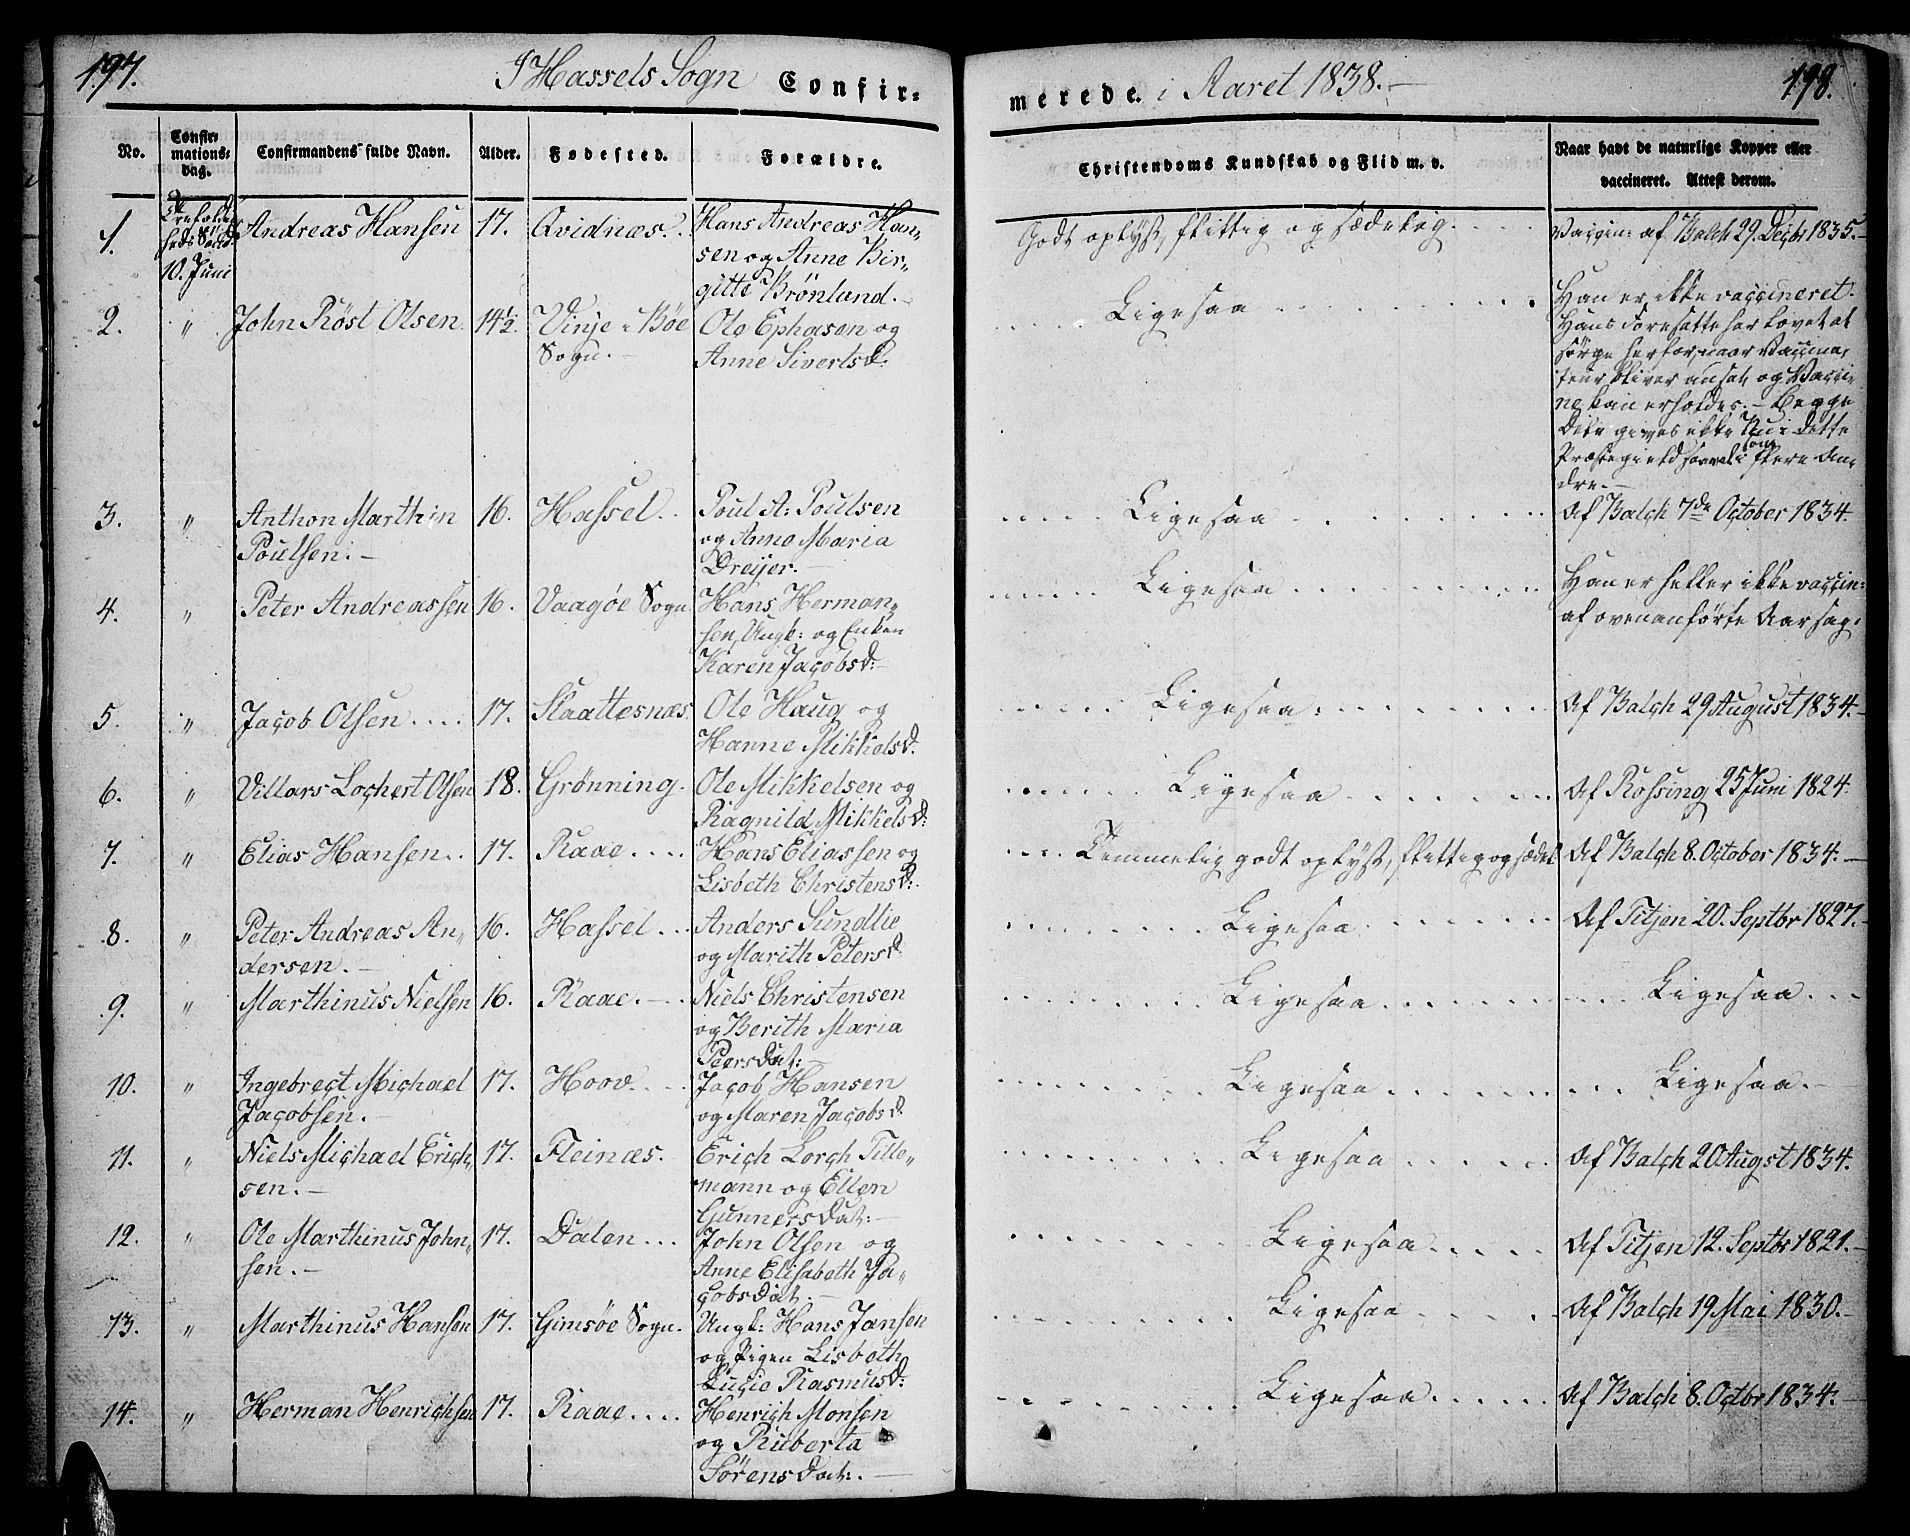 197.
I Hassels Sogn Confir-
merede. i Aaret 1838.-
198.
No.
Confir-
mations-
dag.
Confirmandens fulde Navn.
Alder.
Fødested.
Forældre.
Christendoms Kundskab og Flid m. v.
Naar havt de naturlige Kopper eller
vaccineret. Attest derom.
1.
Trefoldig-
heds Sønd:
10. Juni
Andreas Hansen
17.
Qvidnæs.
Hans Andreas Han-
sen og Anne Bir-
gitte Brönlund.-
Godt oplyst, flittig og sædelig.
Vaccin: af Balch 29. Decbr 1835.-
2.
"
John Röst Olsen
14½
Vinje i Böe
Sogn.-
Ole Ephasen og
Anne Sivertsd:
Ligesaa
Han er ikke vaccineret.
Hans Foresatte har lovet at
sörge herfor, naar Vaccina-
teur bliver ansat, og Vacci-
ne kan erholdes.- Begge
Dele gives ikke Nu i dette
Præstegield saavel som i flere An-
dre.-
3.
"
Anthon Marthin
Poulsen.-
16.
Hassel.
Poul A: Poulsen
og Anne Maria
Dreijer.-
Ligesaa
Af Balch 7de October 1834.
4.
"
Peter Andreassen
16.
Vaagöe Sogn
Hans Herman-
sen, Ungk: og Enken
Karen Jacobsd:-
Ligesaa
Han er heller ikke vaccin:
af ovenanförte Aarsag.
5.
"
Jacob Olsen....
17.
Slaattesnæs.
Ole Haug og
Hanne Mikkelsd:
Ligesaa.
Af Balch 29 August 1834.-
6.
"
Villars Lochert Olsen
18.
Grönning.
Ole Mikkelsen og
Ragnild Mikkelsd:
Ligesaa
Af Rossing 25 Juni 1824.
7.
"
Elias Hansen..
17.
Raae....
Hans Eliassen og
Lisbeth Christensd:
Temmelig godt oplyst, flittig og sædel:
Af Balch 8. October 1834.-
8.
"
Peter Andreas An-
dersen.-
16.
Hassel...
Anders Sundlie
og Marith Petersd:
Ligesaa
Af Titjen 20. Septbr 1827.-
9.
"
Marthinus Nielsen
16.
Raae.-..
Niels Christensen
og Berith Maria
Peersdat:-
Ligesaa
Ligesaa...
10.
"
Ingebregt Michael
Jacobsen.-
17.
Hoov....
Jacob Hansen
og Maren Jacobsd:
Ligesaa
Ligesaa.-
11.
"
Niels Michael Erich-
sen.-
17.
Fleinæs.-
Erich Lorch Tille-
mann og Ellen
Gunnersdat:-
Ligesaa
Af Balch 20 Augst 1834.
12.
"
Ole Marthinus John-
sen.-
17.
Dalen...
John Olsen og
Anne Elisabeth Ja-
cobsdat.-
Ligesaa
Af Titjen 12. Septbr 1821.-
13.
"
Marthinus Hansen
17.
Gimsöe Sogn.
Ungk: Hans Jansen
og Pigen Lisbeth
Lucie Rasmusd:
Ligesaa
Af Balch 19 Mai 1830.-
14.
"
Herman Henrichsen
17.
Raae....
Henrich Monsen
og Ruberta
Sörensdat:.-
Ligesaa
Af Balch 8. Octbr 1834.-